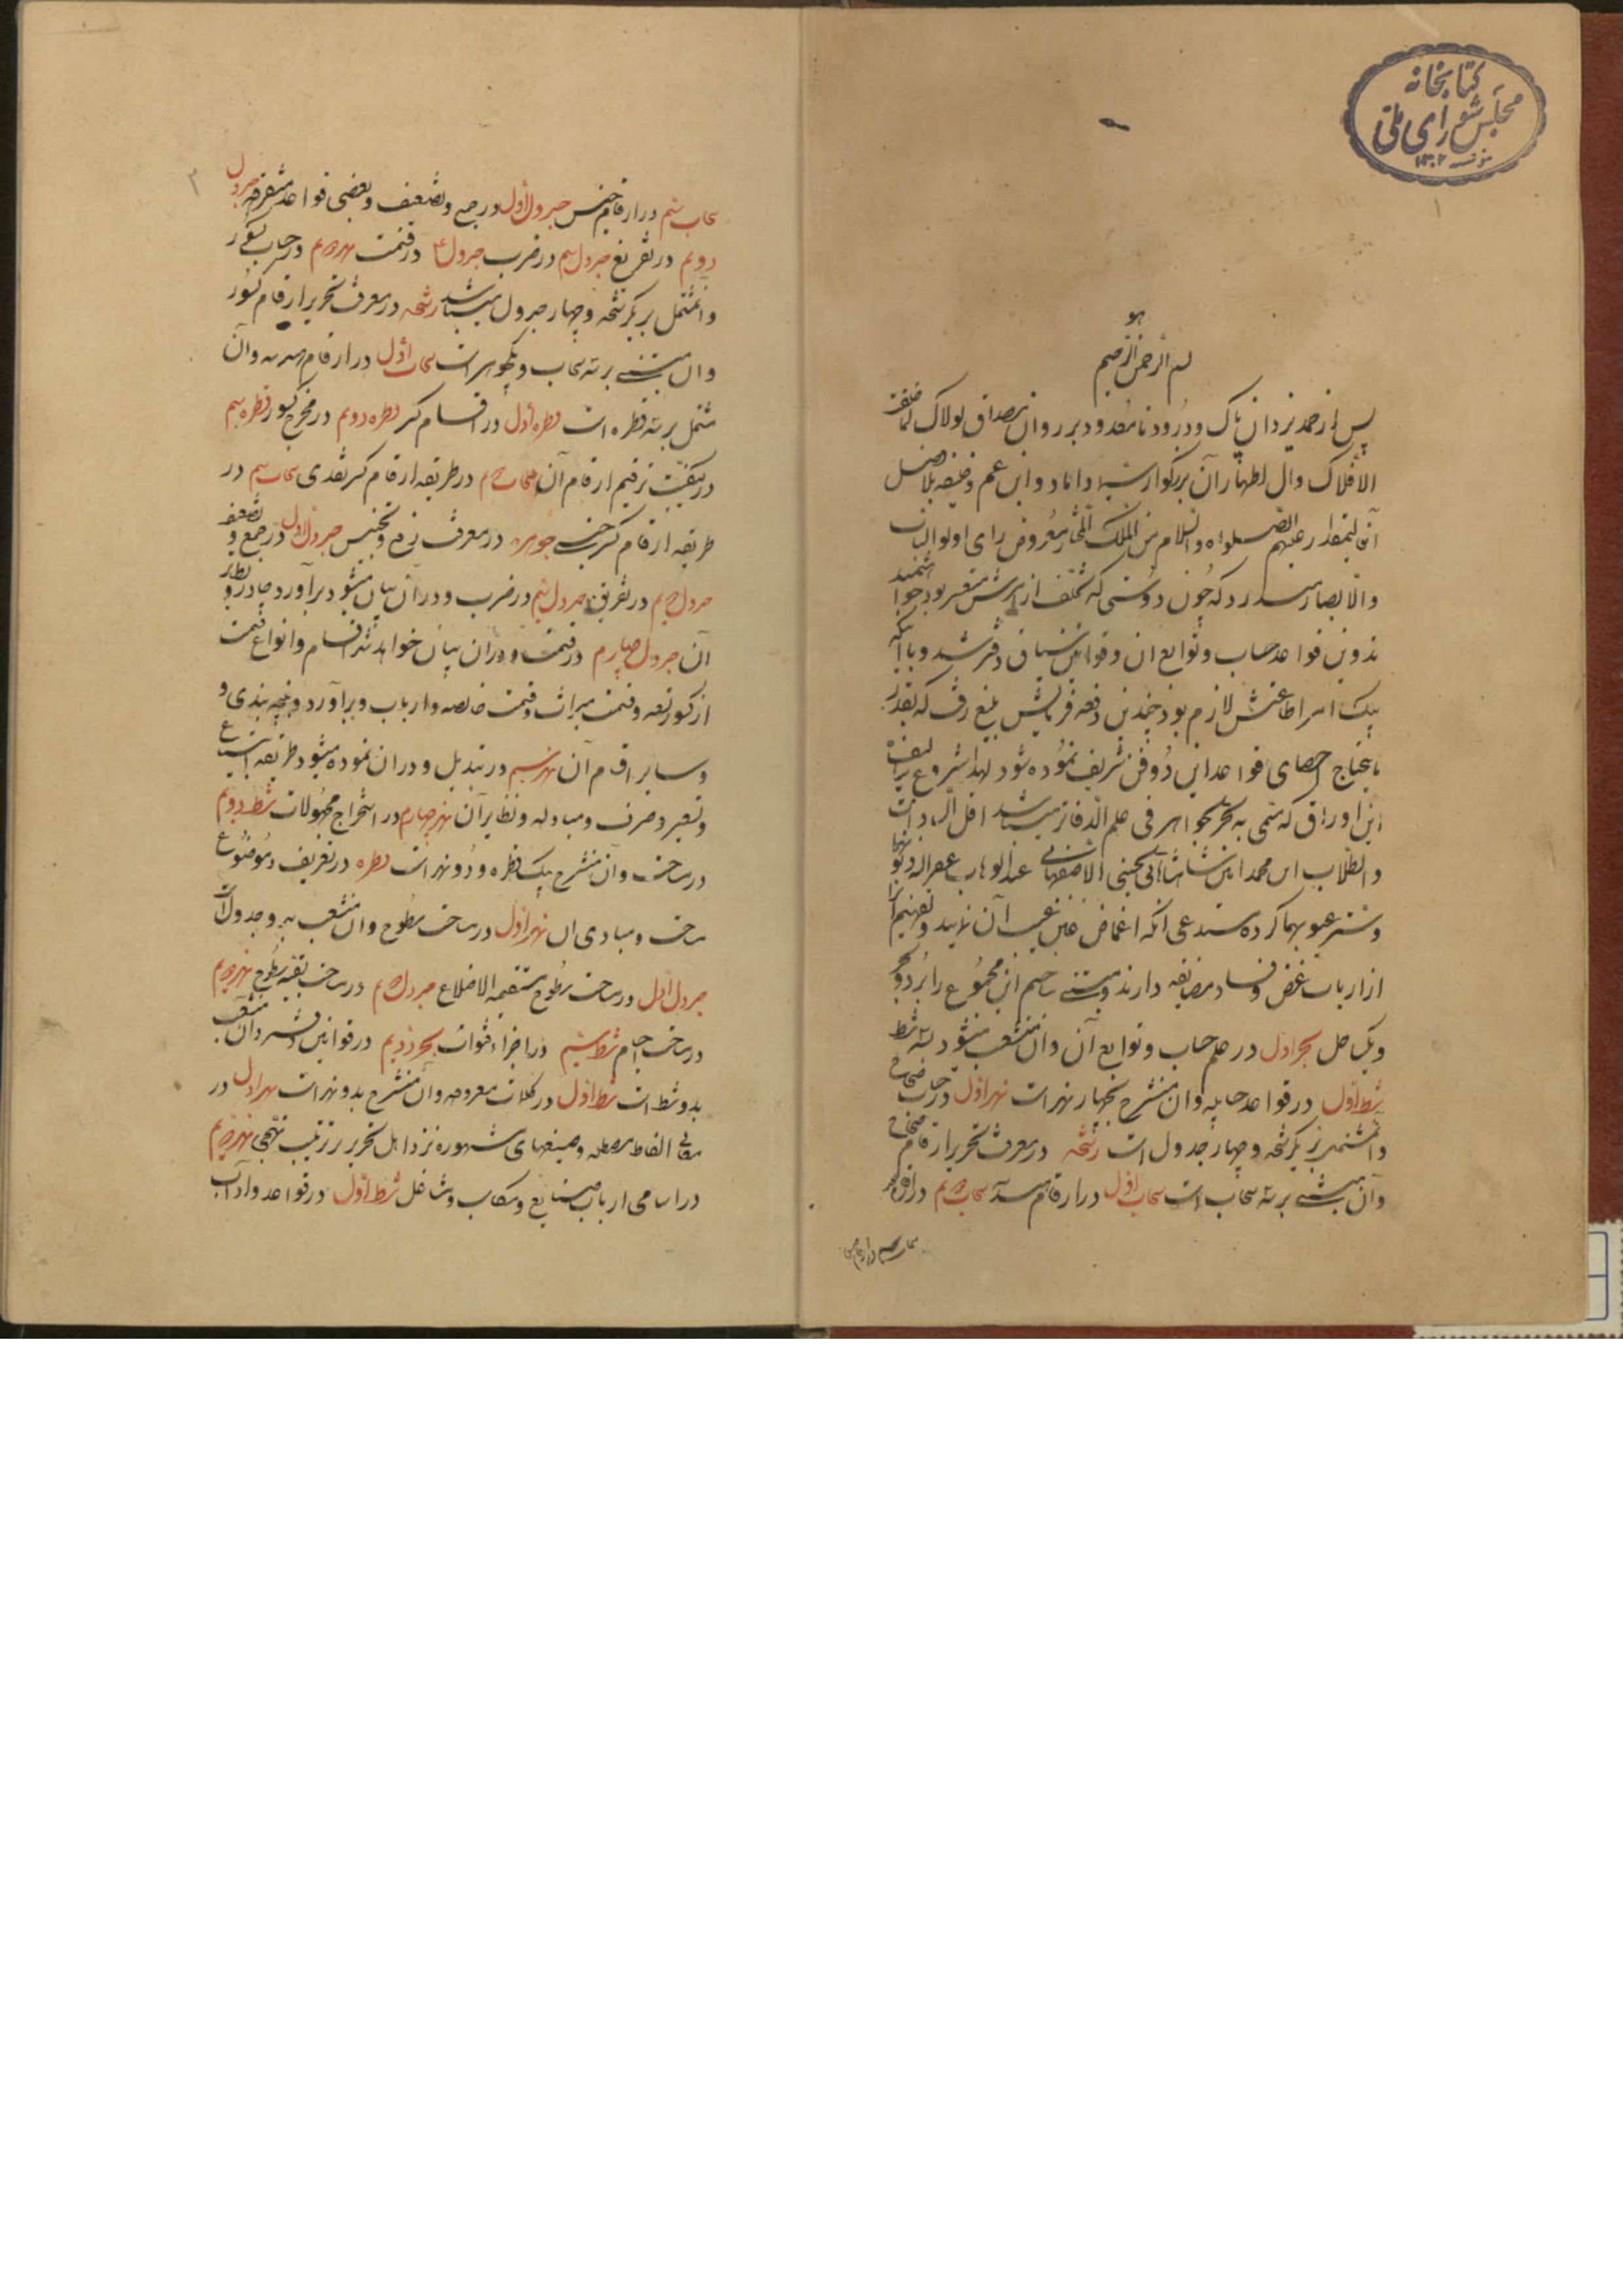 کتابخانه
مجلس شورای ملی
۱۳۰۲
۱
هو
بسم الله الرحمن الرحیم
پس از حمد یزدان پاک و درود نامعدود بر روان مصداق لولاک لما خلقت
الافلاک وال اطهار آن بزرگوار سیما داماد و ابن عم و خلیفه بلافصل
آن علیهم الصلواه والسلام من الملک معروض رای اولوالالباب
والابصار میدارد که چون دوستی که تخلف از بود خواهشمند
تدوین قواعد حساب و توابع ان و قوانین سیاق دفتر شد و با آنکه
یک امر اطاعتش لازم بود چندین دفعه فرمایش بلیغ رفت که بقدر
مایحتاج احصای قواعد این دو فن شریف نموده شود لهذا شروع بتالیف
این اوراق که مسمی به بحر الجواهر فی علم الدفاتر میباشد اقل السادات
والطلاب ابن محمد امین الحسینی الاصفهانی عبدالوهاب غفر الله ذنوبهما
وستر عیوبهما کرده مستدعی انکه اغماض عین آن نمایند و تفهیم آنرا
از ارباب غرض و فساد مضایقه دارند و مبتنی ساختم این مجموع را بر دو بحر
و یک ساحل بحر اول در علم حساب و توابع آن و ان منشعب میشود بسه شط
شط اول در قواعد حسابیه و ان منشرح بچهار نهر است نهر اول در حساب صحاح
و آن مشتمل بر یک رشحه و چهار جدول است رشحه در معرفت تحریر ارقام صحاح
و آن مبتنی بر سه سحاب است سحاب اول در ارقام هندسه سحاب دویم در
سحاب سیم در ارقام جنس
۲
سحاب سیم در ارقام جنس جدول اول در جمع و تضعیف و بعضی قواعد متفرقه جدول
دویم در تفریق جدول سیم در ضرب جدول ۴ در قسمت نهر دویم در حساب کسور
و ان مشتمل بر یک رشحه و چهار جدول میباشد رشحه در معرفت تحریر ارقام کسور
وان مبتنی بر سه سحاب و یک جوهر است سحاب اول در ارقام هندسه وآن
مشتمل بر سه قطره است قطره اول در اقسام کسر قطره دویم در مخرج کسور قطره سیم
در کیفیت ترقیم ارقام آن سحاب دویم در طریقه ارقام کسر نقدی سحاب سیم در
طریقه ارقام کسر جنسی جوهره در معرفت رفع و تجنیس جدول اول در جمع و تضعیف
جدول دویم در تفریق جدول سیم در ضرب و در ان بیان میشود برآورد و نظایر
آن جدول چهارم در قسمت و در ان بیان خواهد شد اقسام و انواع قسمت
از کور قسمت میراث و قسمت خالصه و ارباب و برآورد و بندی و
و سایر اقسام آن نهر سیم در تبدیل و در ان نموده میشود طریقه ابتیاع
و تسعیر و صرف و مبادله و نظایر آن نهر چهارم در استخراج مجهولات شط دویم
در مساحت و آن منشرح بیک قطره و دو نهر است قطره در تعریف و موضوع
مساحت و مبادی ان نهر اول در مساحت سطوح و ان منشعب بدو جدول است
جدول اول در مساحت سطوح مستقیمه الاضلاع جدول دویم در مساحت بقیه سطوح نهر دویم
در مساحت اجسام شط سیم در اجراء قنوات بحر دویم در قوانین دفتر وان منشعب
بدو شط است شط اول در کلمات معروضه و ان منشرح بدو نهر است نهر اول در
معانی الفاظ مصطلحه و صیغهای مشهوره نزد اهل تحریر بر ترتیب تهجی نهر دویم
در اسامی ارباب صنایع و مکاسب و مشاغل شط اول در قواعد و آداب